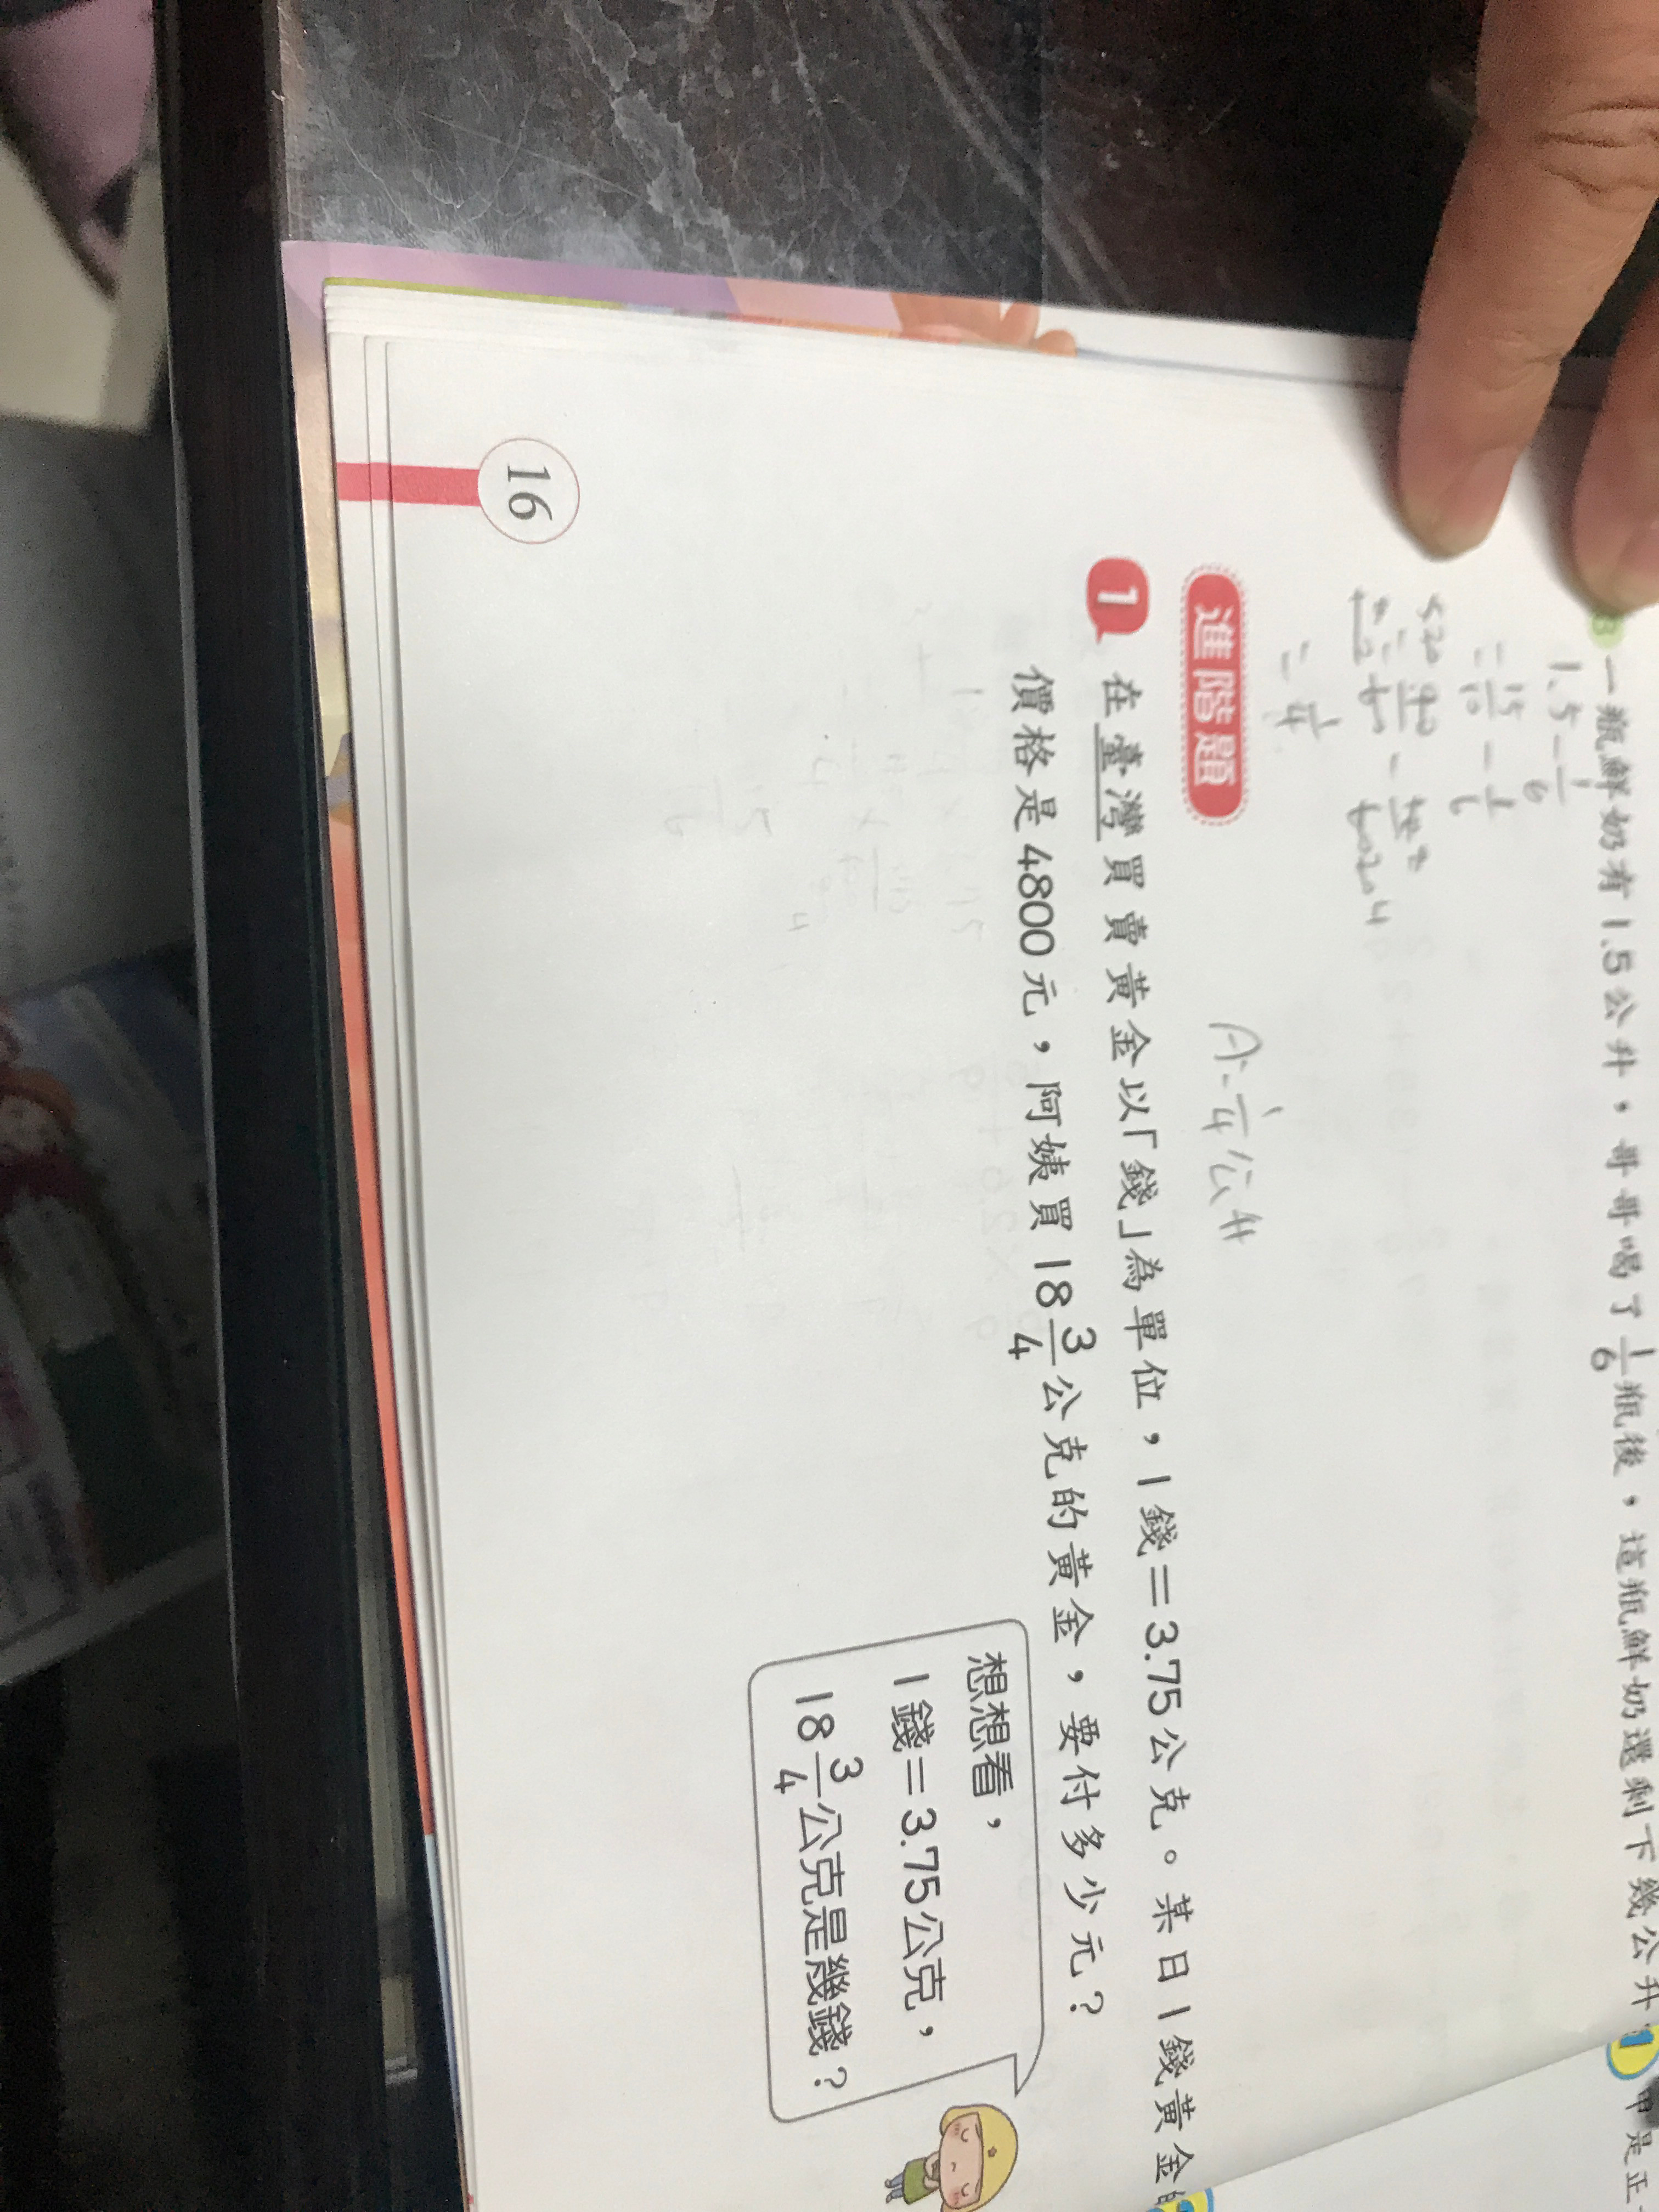 3 一瓶鮮奶有1.5公升，哥哥喝了1/6瓶後，這瓶鮮奶還剩下幾公升
1.5－1/6
＝15/10－1/6
＝1/4
A：1/4公升
進階題
1 在臺灣買賣黃金以「錢」為單位，1錢＝3.75公克。某日1錢黃金的
價格是4800元，阿姨買18 3/4公克的黃金，要付多少元？
想想看，
1錢＝3.75公克，
18 3/4公克是幾錢？
16
1 甲是正